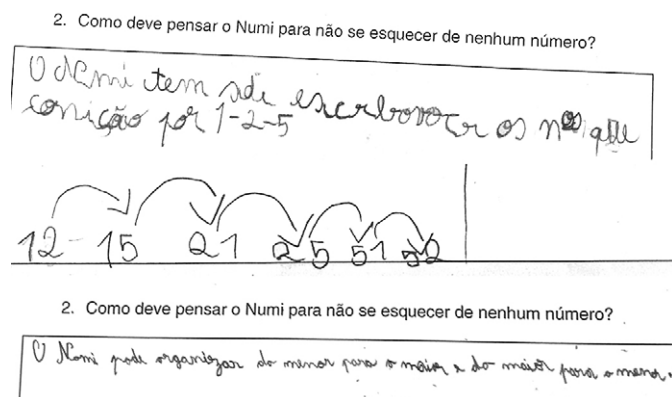 2. Como deve pensar o Numi para não se esquecer de nenhum número?
O Numi tem de os nºs que
por 1-2-5
12 15 21 25 51 52
2. Como deve pensar o Numi para não se esquecer de nenhum número?
O Nomi pode organizar do menor para o maior e do maior para o menor.